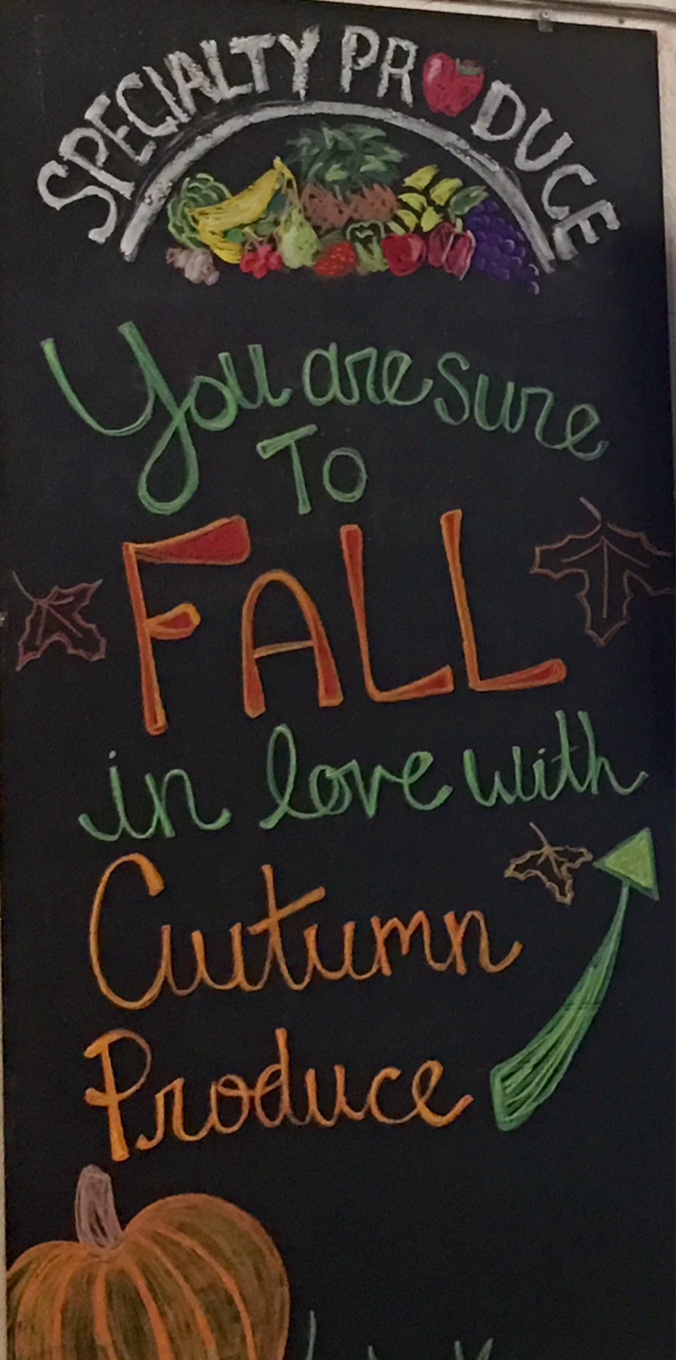 SPECIALTY PRODUCE
You are sure
To
FALL
in love with
Autumn
Produce